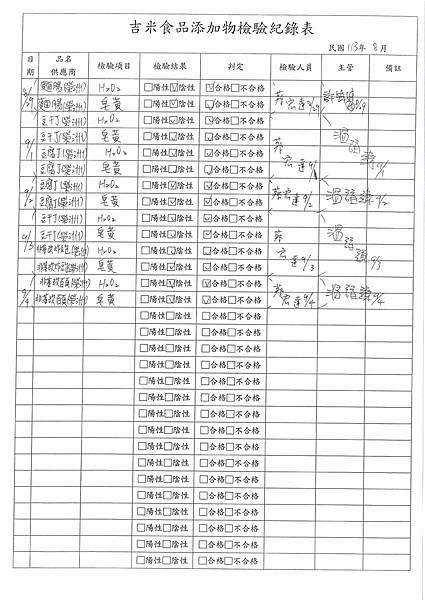 吉米食品添加物檢驗紀錄表
民國 113年 8月
日期 品名供應商 檢驗項目 檢驗結果 判定 檢驗人員 主管 備註
8/29 麵腸(榮洲) H₂O₂ □陽性☑陰性 ☑合格□不合格
麵腸(榮洲) 皂黃 □陽性☑陰性 ☑合格□不合格
9/1 豆干丁(榮洲) H₂O₂ □陽性☑陰性 ☑合格□不合格
豆干丁(榮洲) 皂黃 □陽性☑陰性 ☑合格□不合格
豆腐丁(榮洲) H₂O₂ □陽性☑陰性 ☑合格□不合格
豆腐丁(榮洲) 皂黃 □陽性☑陰性 ☑合格□不合格
9/2 豆腐丁(榮洲) H₂O₂ □陽性☑陰性 ☑合格□不合格 9/2 9/2
豆腐丁(榮洲) 皂黃 □陽性☑陰性 ☑合格□不合格
9/3 豆干丁(榮洲) H₂O₂ □陽性☑陰性 ☑合格□不合格
豆干丁(榮洲) 皂黃 □陽性☑陰性 ☑合格□不合格
(榮洲) H₂O₂ □陽性☑陰性 ☑合格□不合格 9/3 9/3
(榮洲) 皂黃 □陽性☑陰性 ☑合格□不合格
9/4 (榮洲) H₂O₂ □陽性☑陰性 ☑合格□不合格 9/4 9/4
(榮洲) 皂黃 □陽性☑陰性 ☑合格□不合格
□陽性□陰性 □合格□不合格
□陽性□陰性 □合格□不合格
□陽性□陰性 □合格□不合格
□陽性□陰性 □合格□不合格
□陽性□陰性 □合格□不合格
□陽性□陰性 □合格□不合格
□陽性□陰性 □合格□不合格
□陽性□陰性 □合格□不合格
□陽性□陰性 □合格□不合格
□陽性□陰性 □合格□不合格
□陽性□陰性 □合格□不合格
□陽性□陰性 □合格□不合格
□陽性□陰性 □合格□不合格
□陽性□陰性 □合格□不合格
□陽性□陰性 □合格□不合格
□陽性□陰性 □合格□不合格